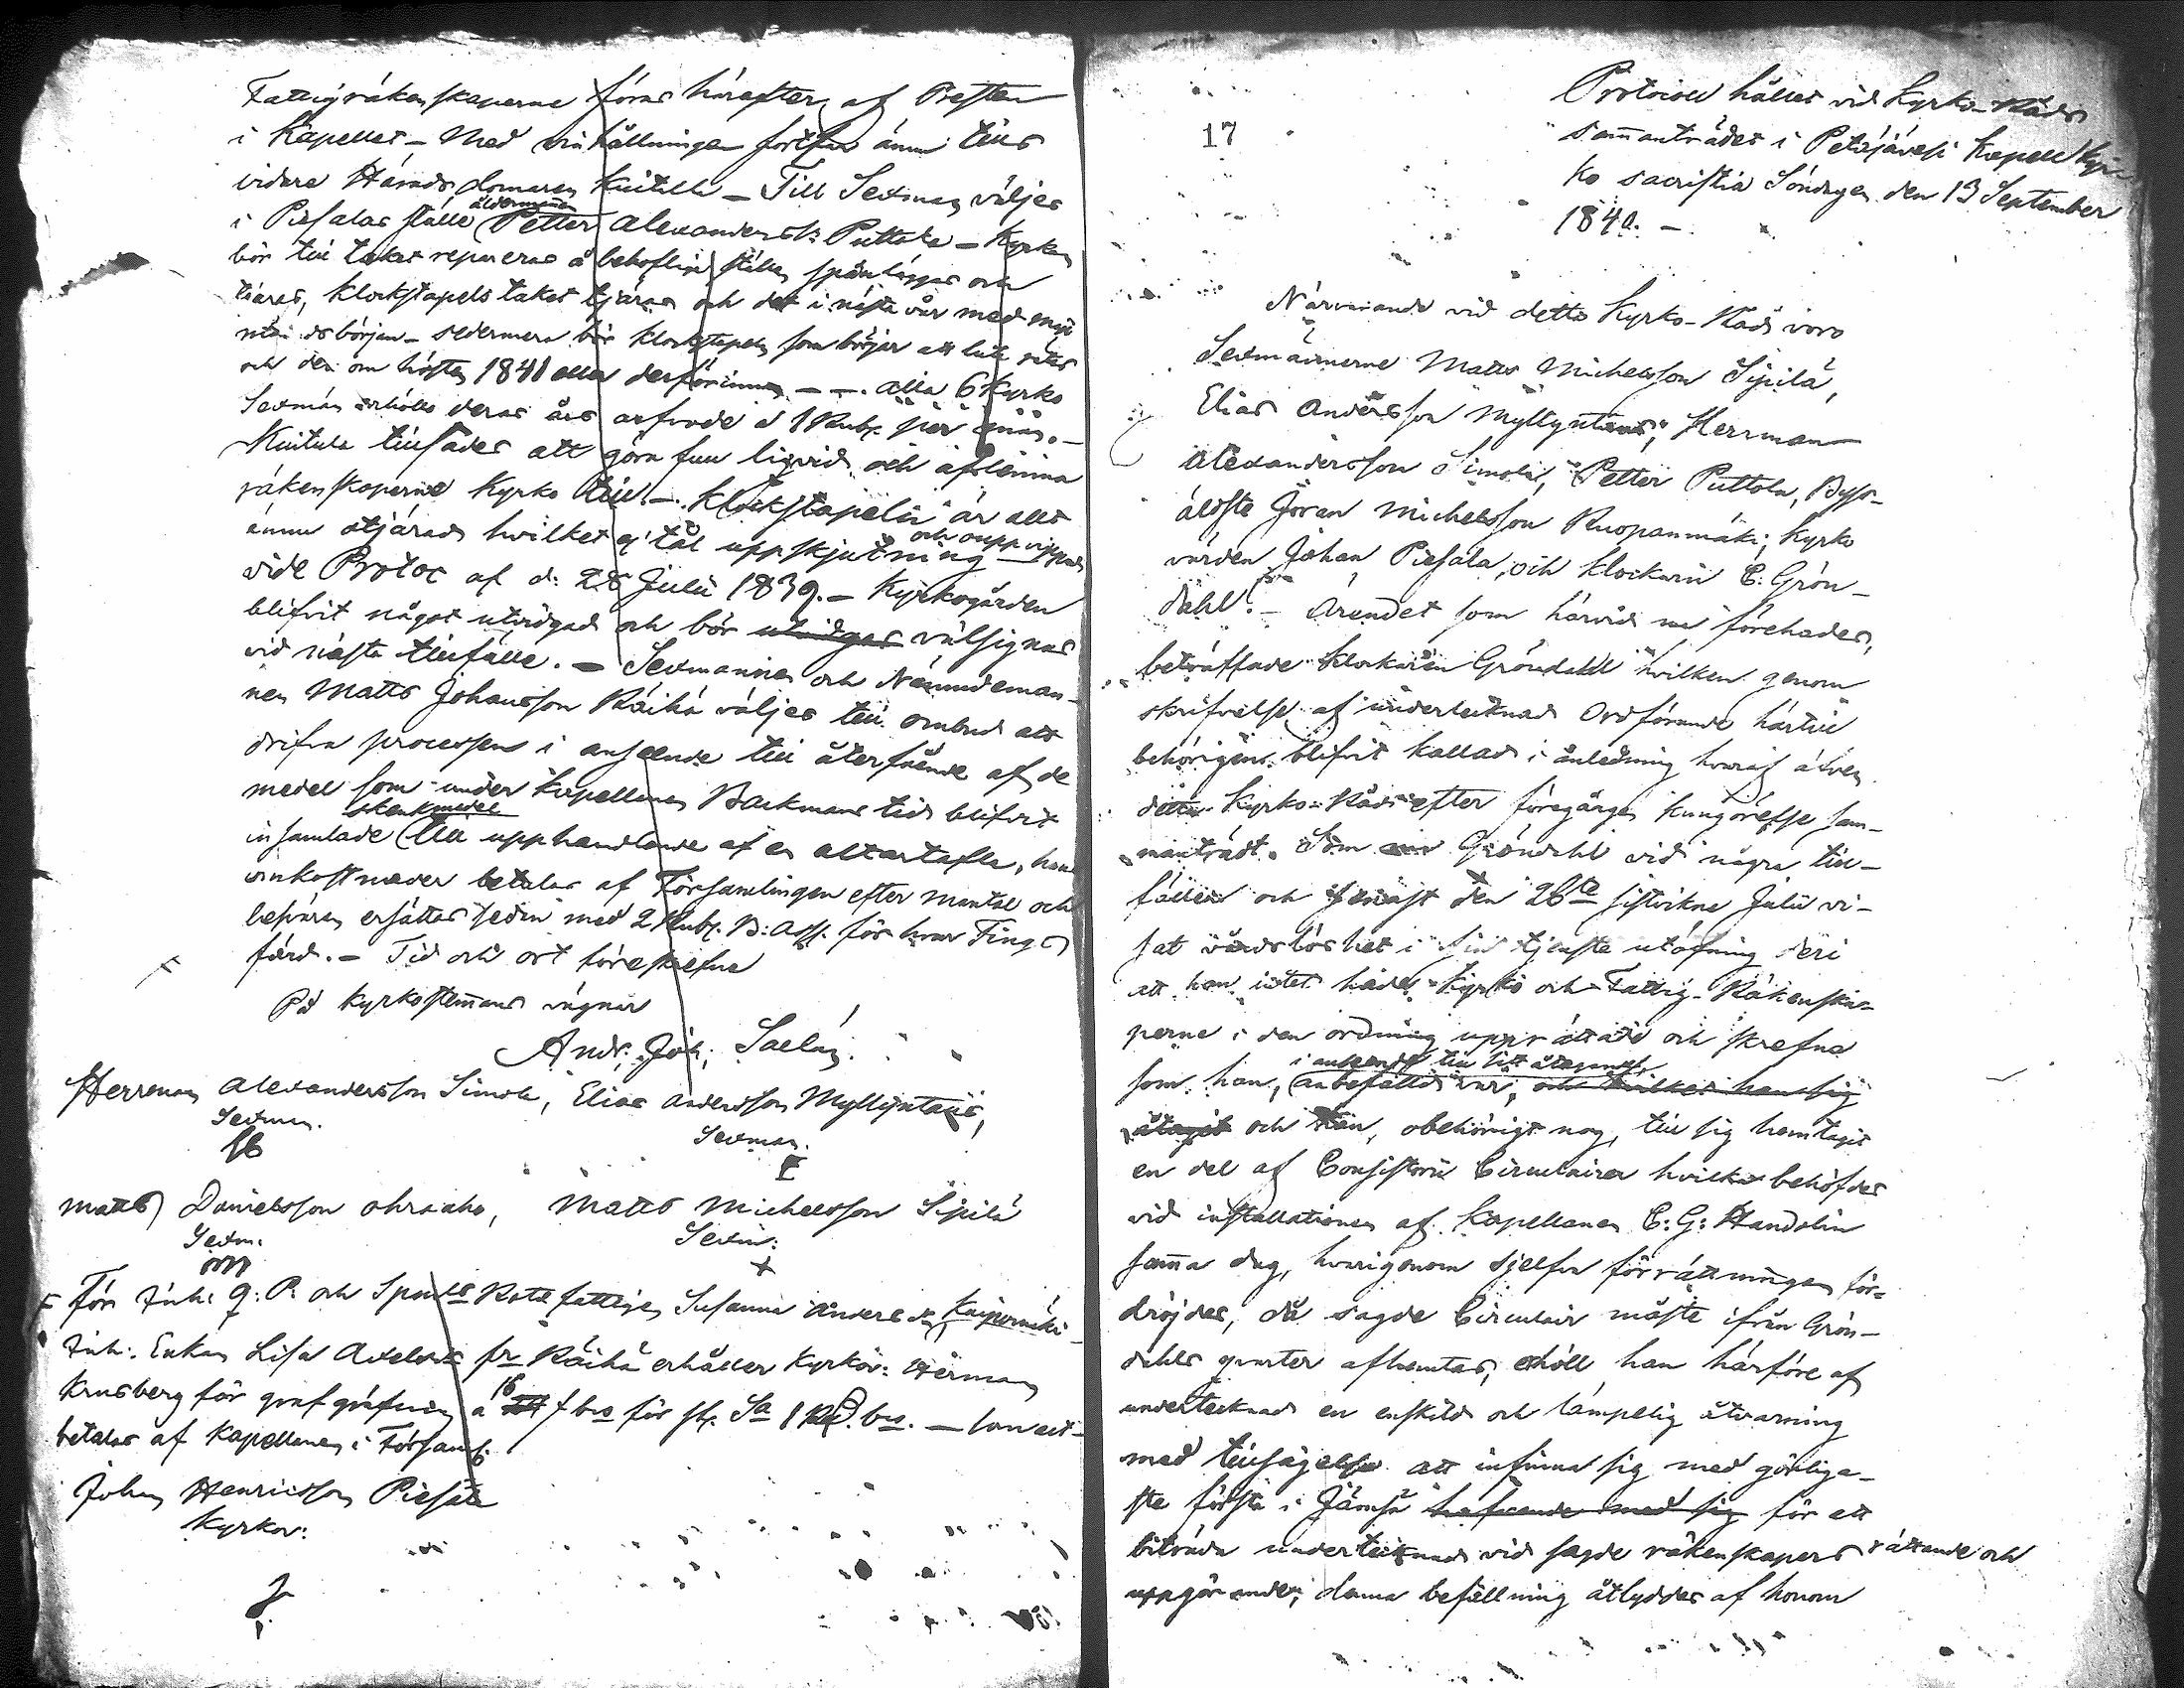 Fattigräkenskaperne föras härefter af Presten
i Kapellet – Med vinhållningen fortfar ännu tills
vidare Häradsdomaren Kuitula – Till Sexman väljes
i Piesalas ställe åldermannen Petter Alexanderss: Puttola – Kyrkan
bör till taket repareras å behöflige ställen spånläggas och
tjäras, klockstapels taket tjäras och det i nästa vår med
början – sedermera bör klockstapeln som börjar att luta rätas
och det om hösten 1841 eller derförinnan – –. Alla 6 Kyrko
Sexmän erhålla deras års arfvode à 1 Rub. per
Kuitula tillsades att göra full liqvid och aflemna
räkenskaperne Kyrko till –. Klockstapeln är allt
ännu otjärad hvilket ej tål uppskjutning och
vide Protoc af d: 26 Julii 1839. – Kyrkogården
blifvit något utvidgad och bör utvidgas välsignas
vid nästa tillfälle. – Sexmannen och Nämndeman-
nen Matts Johansson Räihä väljes till ombud att
drifva processen i anseende till återfående af de
medel som under Kapellanen Backmans tid blifvit
insamlade skänkmedel till upphandlande af en altartafla, hans
omkostnader betalas af Församlingen efter mantal och
besväret ersättes sedan med 2 Rub. B: Ass. för hvar Tings
färd. – Tid och ort föreskrefne
På Kyrkostemmans vägnar
Andr: Joh: Saelán.
Herrman Alexandersson Simola, Elias Andersson Myllyntaus,
Sexman. Sexman.
Matts Danielsson Ahvaaho, Matts Michelsson Sipilä
Sexm: Sexm:
För Inh: Q: P. och Rote fattigen Susanna Andersdr
Inh: Enkan Lisa Axelsdr fr Räihä erhåller Kyrkov: Herman
Krusberg för grafgräfning à 16 bco för st. Sa 1 Rub. bco. –
betalas af Kapellanen i Församl:
Johan Henricsson Piesala
Kyrkov:
17
Protocoll hållet vid Kyrko-Råds
sammanträdet i Petäjävesi Kapell Kyr
ko sacristia Söndagen den 13 September
1840. –
Närvarande vid detta Kyrko-Råds voro
Sexmännerne Matts Michelsson Sipilä,
Elias Andersson Myllyntaus, Herrman
Alexandersson Simola, Petter Puttola, By-
äldste Jöran Michelsson Ruopanmäki, Kyrko
värden Johan Piesala, och klockarn C: Grön-
dahl. – Ärendet som härvid nu förehades,
beträffade Klockaren Gröndahl hvilken genom
skrifvelse af undertecknad Ordförande härtill
behörigen blifvit kallad i anledning hvaraf äfven
detta Kyrko-Råds efter föregången kungörelse sam-
manträdt. Som Gröndahl vid några till-
fällen och senast den 26te sistvikne Julii vi-
sat vårdslöshet i sin tjenste utöfning deri
att han intet hade Kyrko och Fattig-Räkenska-
perne i den ordning upprättade och skrefne
som han, i anseende till sitt åtagande, anbefalld var, och hvilket han sig
åtagit och han, obehörigt nog, till sig hemtagit
en del af Consistorii Circulairer hvilka behöfdes
vid installationen af Kapellanen C: G: Handolin
samma dag, hvarigenom sjelfva förrättningen för-
dröjdes, då sagde Circulair måste ifrån Grön-
dahls qvarter afhemtas, erhöll han härföre af
undertecknad en enskild och lämpelig åtvarning
med tillsägelse att infinna sig med görliga-
ste första i Jämsä hafvande med sig för att
biträda undertecknad vid sagde räkenskapers rättande och
uppgörande, denna befallning åtlyddes af honom